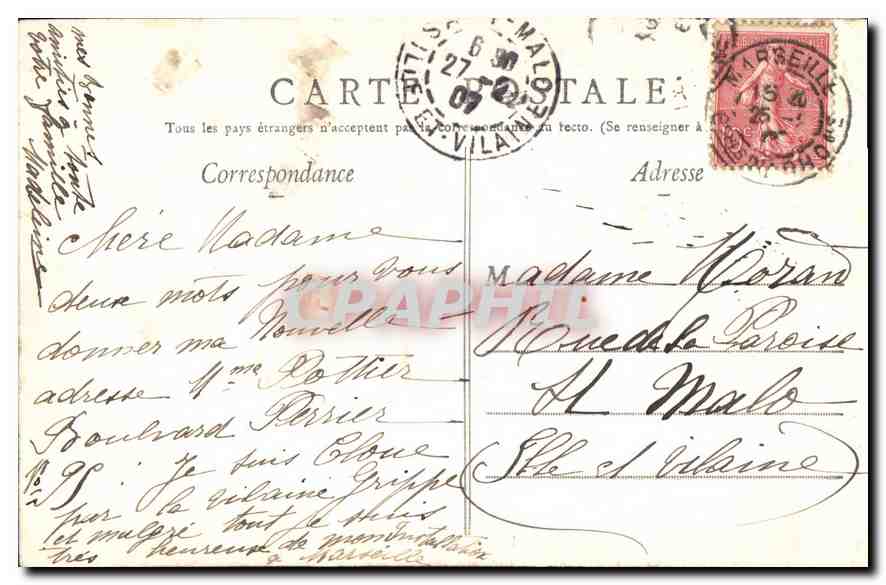 CARTE POSTALE
Tous les pays étrangers n'acceptent pas la correspondance au recto. (Se renseigner à
Correspondance
Adresse
Chère Madame
deux mots pour vous
donner ma Nouvelle
adresse Mme Pothier
Boulvard Perrier
No 95. Je suis Cloue
par la vilaine Grippe
et malgré tout je suis
très heureuse de mon Installation
a Marseille
mes bonnes
amitiés a toute
votre famille
Madeleine
Madame Moran
Rue de la Paroise
St Malo
Ille et Vilaine
ST-MALO
6 30
27
07
ILLE-ET-VILAINE
MARSEILLE
CPAPHIL